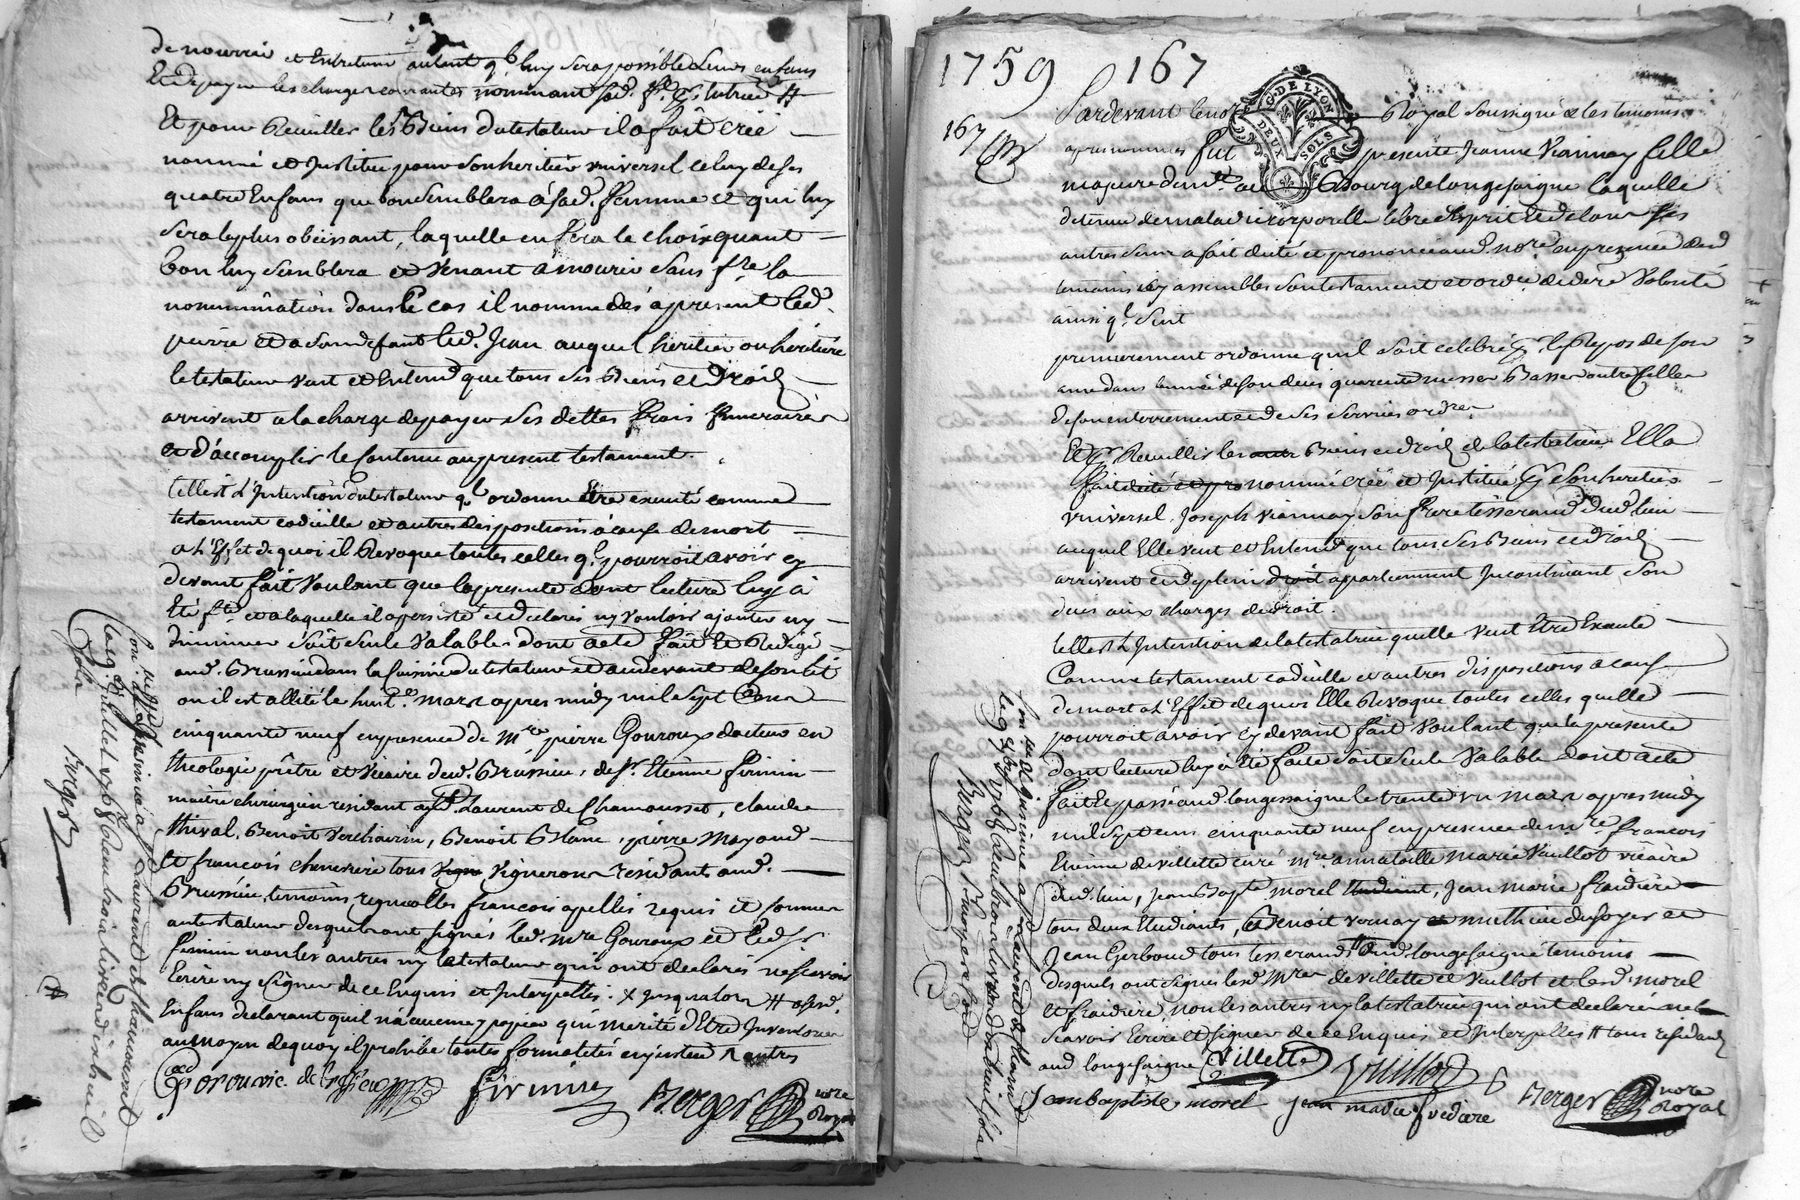 de nourrir et Entretenir autant ql luy sera possible leurs enfans
Et de payer les charges courantes nommant sad. fe. tutrice #
Et pour Recuillir les Biens du testateur il a fait créé
nommé et Institué pour son heritier universel celuy de ses
quatre Enfans que bon semblera à sad. femme et qui luy
sera le plus obéissant, laquelle en fera le choix quant
bon luy semblera et venant a mourir sans fre la
nommination dans ce cas il nomme dés àpresent led.
pierre et a son deffaut led. Jean auquel heritier ou heritiere
le testateur veut et Entend que tous ses Biens et droits
arrivent a la charge de payer ses dettes frais funeraires
et d'accomplir le Contenu au present testament.
telle est L'Intention du testateur ql ordonne Etre executé comme
testament codicille et autres dispositions à cause de mort
a L'Effet de quoi il Revoque toutes celles ql pourroit avoir cy
devant fait voulant que la presente dont lecture luy à
Eté fte et a laquelle il a persisté et declaré ny vouloir ajouter ny
diminuer soit seule valable dont acte fait et Redigé
aud. Brussieu dans la Cuisine du testateur et au devant de son lit
ou il est allité le huit mars apres midy mil sept Cent
cinquante neuf en presence de Mre pierre Gouroux docteur en
theologie prêtre et vicaire dud. Brussieu, de Sr. Etienne firmin
maitre chirurgien residant a St. Laurent de Chamousset, claude
thival, Benoit Verchavin, Benoit Blanc, pierre Mayoud
et françois cheneviere tous vignerons residant aud.
Brussieu, temoins requis et appellés françois apellés requis et sommer
au testateur desquels ont signés led. Mre Gouroux et led. Sr.
firmin non les autres ny le testateur qui ont declarés ne scavoir
Ecrire ny signer de ce Enquis et Interpellés. x jusqu'alors # esd.
Enfans declarant quil n'a aucuns papiers qui merite d'Etre Inventorier
au moyen de quoy il prohibe toutes formalités en justice & autres
Gorou vic. de Brussieu
firmin
Berger nore Royal
Con.
a St Laurent de Chamousset
juillet 1768
Berger
1759 167
167
G. DE LYON
DEUX SOLS
Pardevant le nore Royal soussigné & les temoins
apres nommés fut presente Jeanne Viannay fille
majeure demte. au Bourg de Longessaigne laquelle
detenue de maladie corporelle libre d'Esprit et de tous ses
autres sens a fait dicté et prononcé aud. nore en presence desd.
temoins icy assemblés son testament et ordce de dere volonté
ainsi ql suit
premierement ordonne quil soit celebré pr le Repos de son
ame dans l'année de son deces quarente messes Basses outre celles
de son enterrement et de ses services ordres
Et pr Recuillir les Biens et droits de la testatrice Elle
fait dicté et pro nommé créé et Institué pr son heritier
universel Joseph Viannay son frere tisserand dud. lieu
auquel Elle veut et Entend que tous ses Biens et droits
arrivent et de plein droit appartiennent Incontinant son
deces aux charges de droit.
telle est L'Intention de la testatrice quelle veut Etre Executé
Comme testament codicille et autres dispositions a cause
de mort a L'Effet de quoi Elle Revoque toutes celles quelle
pourroit avoir cy devant fait voulant que la presente
dont lecture luy à Eté faite soit seule valable dont acte
fait et passé aud. longessaigne le trente un mars apres midy
mil sept cens cinquante neuf en presence de mre françois
Etienne de villette curé mre annatoille marie Vuillot vicaire
dud. lieu, Jean Bapte morel Etudiant, Jean marie fraidiere
tous deux Etudiants, Benoit Vernay mathieu dusoyer et
Jean Gerboud tous tisserands dud. longessaigne temoins
desquels ont signés lesd. Mres de villette et Vuillot et lesd. morel
et fraidiere, non les autres ny la testatrice qui ont declaré ne
scavoir Ecrire et signer de ce Enquis et Interpellés # tous residants
aud. longessaigne
Villette
Vuillot
Berger nore Royal
Jean baptiste morel
jean marie fredière
a St Laurent de Chamousset
le 9
Berger